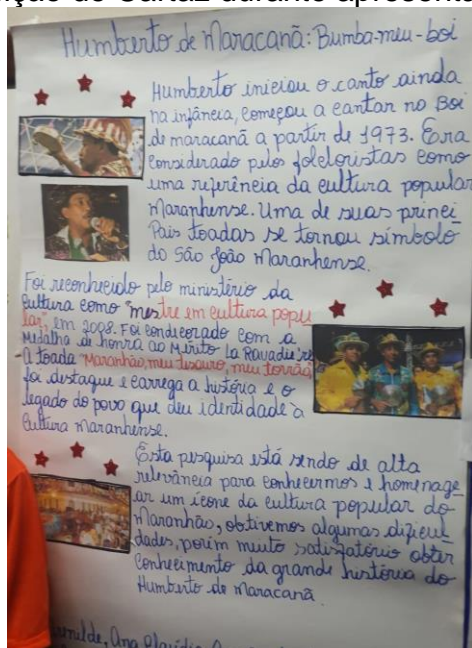 nção do Cartaz durante apresent
Humberto de Maracanã: Bumba-meu-boi
Humberto iniciou o canto ainda
na infância, começou a cantar no Boi
de maracanã a partir de 1973. Era
considerado pelos folcloristas como
uma referência da cultura popular
Maranhense. Uma de suas princi
Pais toadas se tornou símbolo
do São João Maranhense.
Foi reconhecido pelo ministério da
Cultura como "mestre em cultura popu
lar", em 2008. Foi condecorado com a
Medalha de honra ao Mérito La Ravadiè
A toada "Maranhão, meu tesouro, meu torrão"
foi destaque e carrega a história e o
legado do povo que deu identidade à
Cultura Maranhense.
Esta pesquisa está sendo de alta
relevância para conhecermos e homenage
ar um ícone da cultura popular do
Maranhão, obtivemos algumas dificul
dades, porém muito satisfatório obter
Conhecimento da grande história do
Humberto de Maracanã.
Ana Claúdia,